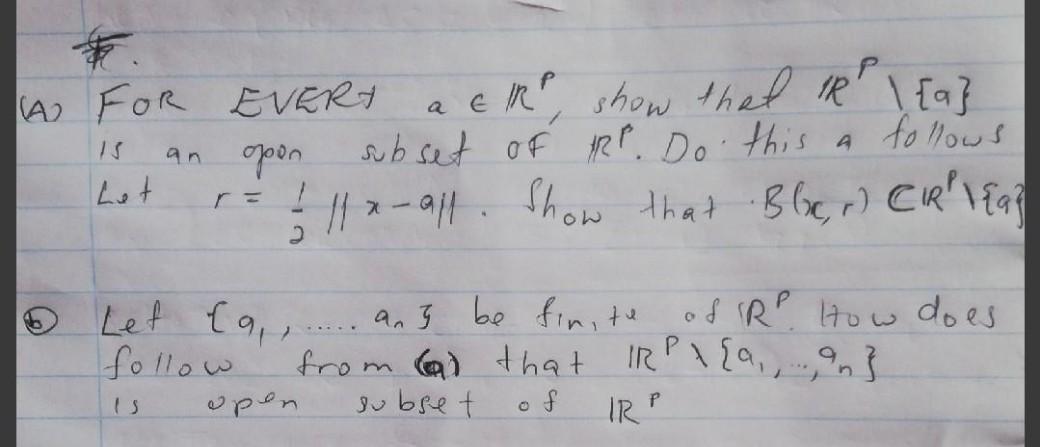 (A) FOR EVERY a ∈ ℝᴾ, show that ℝᴾ \ {a}
is an open subset of ℝᴾ. Do this a follows
Let r = 1/2 ||x-a||. Show that B(x,r) ⊂ ℝᴾ\{a}
(b) Let {a₁, ..... aₙ} be finite of ℝᴾ. How does
follow from (a) that ℝᴾ \ {a₁, ..., aₙ}
is open subset of ℝᴾ